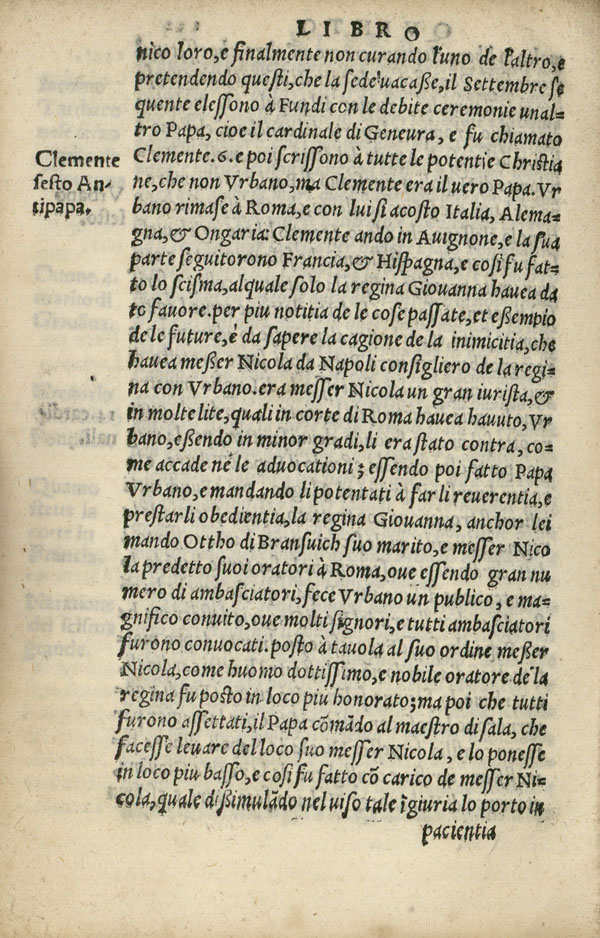 LIBRO
nico loro, e finalmente non curando l'uno de l'altro, e
pretendendo questi, che la sede uacaße, il Settembre se
quente elessono à Fundi con le debite ceremonie unal-
tro Papa, cioe il cardinale di Geneura, e fu chiamato
Clemente. 6. e poi scrissono à tutte le potentie Christia
ne, che non Vrbano, ma Clemente era il uero Papa. Vr
bano rimase à Roma, e con lui si acosto Italia, Alema-
gna, & Ongaria: Clemente ando in Auignone, e la sua
parte seguitorono Francia, & Hispagna, e cosi fu fat-
to lo scisma, alquale solo la regina Giouanna hauea da
to fauore. per piu notitia de le cose passate, et eßempio
de le future, é da sapere la cagione de la inimicitia, che
hauea meßer Nicola da Napoli consigliero de la regi-
na con Vrbano. era messer Nicola un gran iurista, &
in molte lite, quali in corte di Roma hauea hauuto, Vr
bano, eßendo in minor gradi, li era stato contra, co-
me accade né le aduocationi; essendo poi fatto Papa
Vrbano, e mandando li potentati à farli reuerentia, e
prestarli obedientia, la regina Giouanna, anchor lei
mando Ottho di Bransuich suo marito, e messer Nico
la predetto suoi oratori à Roma, oue essendo gran nu
mero di ambasciatori, fece Vrbano un publico, e ma-
gnifico conuito, oue molti signori, e tutti ambasciatori
furono conuocati. posto à tauola al suo ordine meßer
Nicola, come huomo dottissimo, e nobile oratore de la
regina fu posto in loco piu honorato; ma poi che tutti
furono assettati, il Papa cõmãdo al maestro di sala, che
facesse leuare del loco suo messer Nicola, e lo ponesse
in loco piu basso, e cosi fu fatto cõ carico de messer Ni-
cola, quale dißimulãdo nel uiso tale ĩgiuria lo porto in
pacientia
Clemente
sesto An-
tipapa.